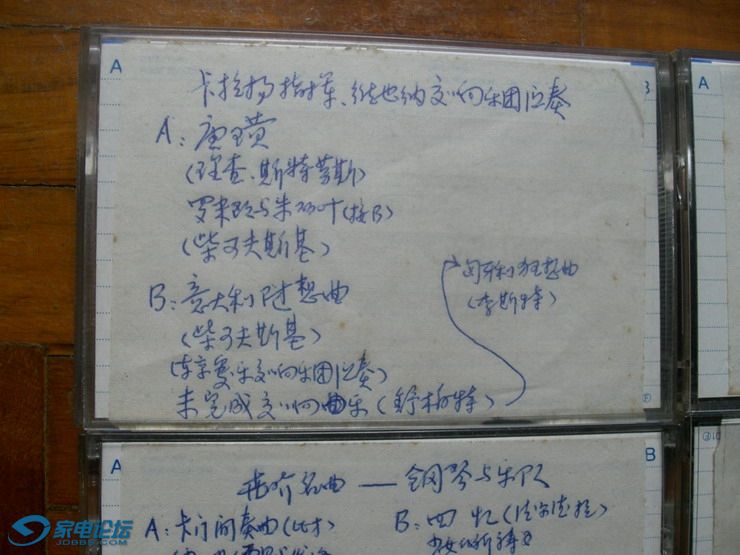 A
3
卡拉扬指挥、维也纳交响乐团演奏
A: 唐璜
(理查、斯特劳斯)
罗米欧与朱丽叶(接B)
(柴可夫斯基)
B: 意大利随想曲
(柴可夫斯基)
(东京爱乐交响乐团演奏)
未完成交响曲乐(舒柏特)
匈牙利狂想曲
(李斯特)
A
A
B
世界名曲——钢琴与乐队
A: 卡门间奏曲(比才)
B: 四
家电论坛
JDBBS.COM